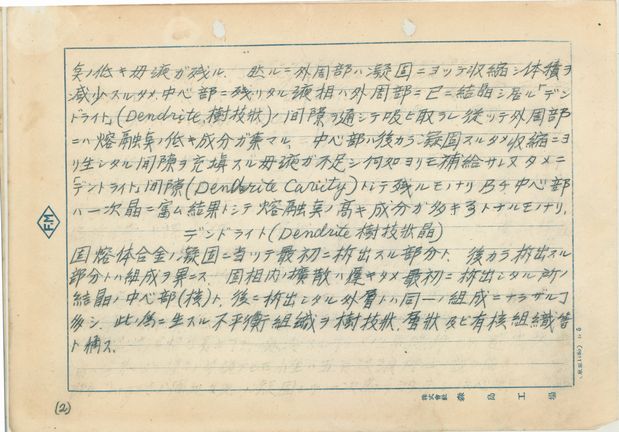 点ノ低キ母液ガ残ル. 然ルニ外周部ハ凝固ニヨツテ収縮シ体積ヲ
減少スルタメ, 中心部ニ残リタル液相ハ外周部ニ已ニ結晶シ居ル「デン
ドライト」(Dendrite, 樹枝状)ノ間隙ヲ通シテ吸ヒ取ラレ従ツテ外周部
ニハ熔融点ノ低キ成分ガ集マル. 中心部ハ後カラ凝固スルタメ収縮ニヨ
リ生シタル間隙ヲ充填スル母液ガ不足シ何処ヨリモ補給サレヌタメニ
「デンドライト」間隙(Dendrite Cavity)トシテ残ルモノナリ 乃チ中心部
ハ一次晶ニ富ム結果トシテ熔融点ノ高キ成分ガ多キ事トナルモノナリ.
デンドライト(Dendrite 樹枝状晶)
固熔体合金ノ凝固ニ当ツテ最初ニ析出スル部分ト, 後カラ析出スル
部分トハ組成ヲ異ニス. 固相内ノ擴散ハ遅キタメ最初ニ析出シタル所ノ
結晶ノ中心部(核)ト, 後ニ析出シタル外層トハ同一ノ組成ニナラザルヿ
多シ. 此ノ為ニ生スル不平衡組織ヲ樹枝状, 層状及ビ有核組織等
ト稱ス.
(2)
FM
株式會社 森島工場